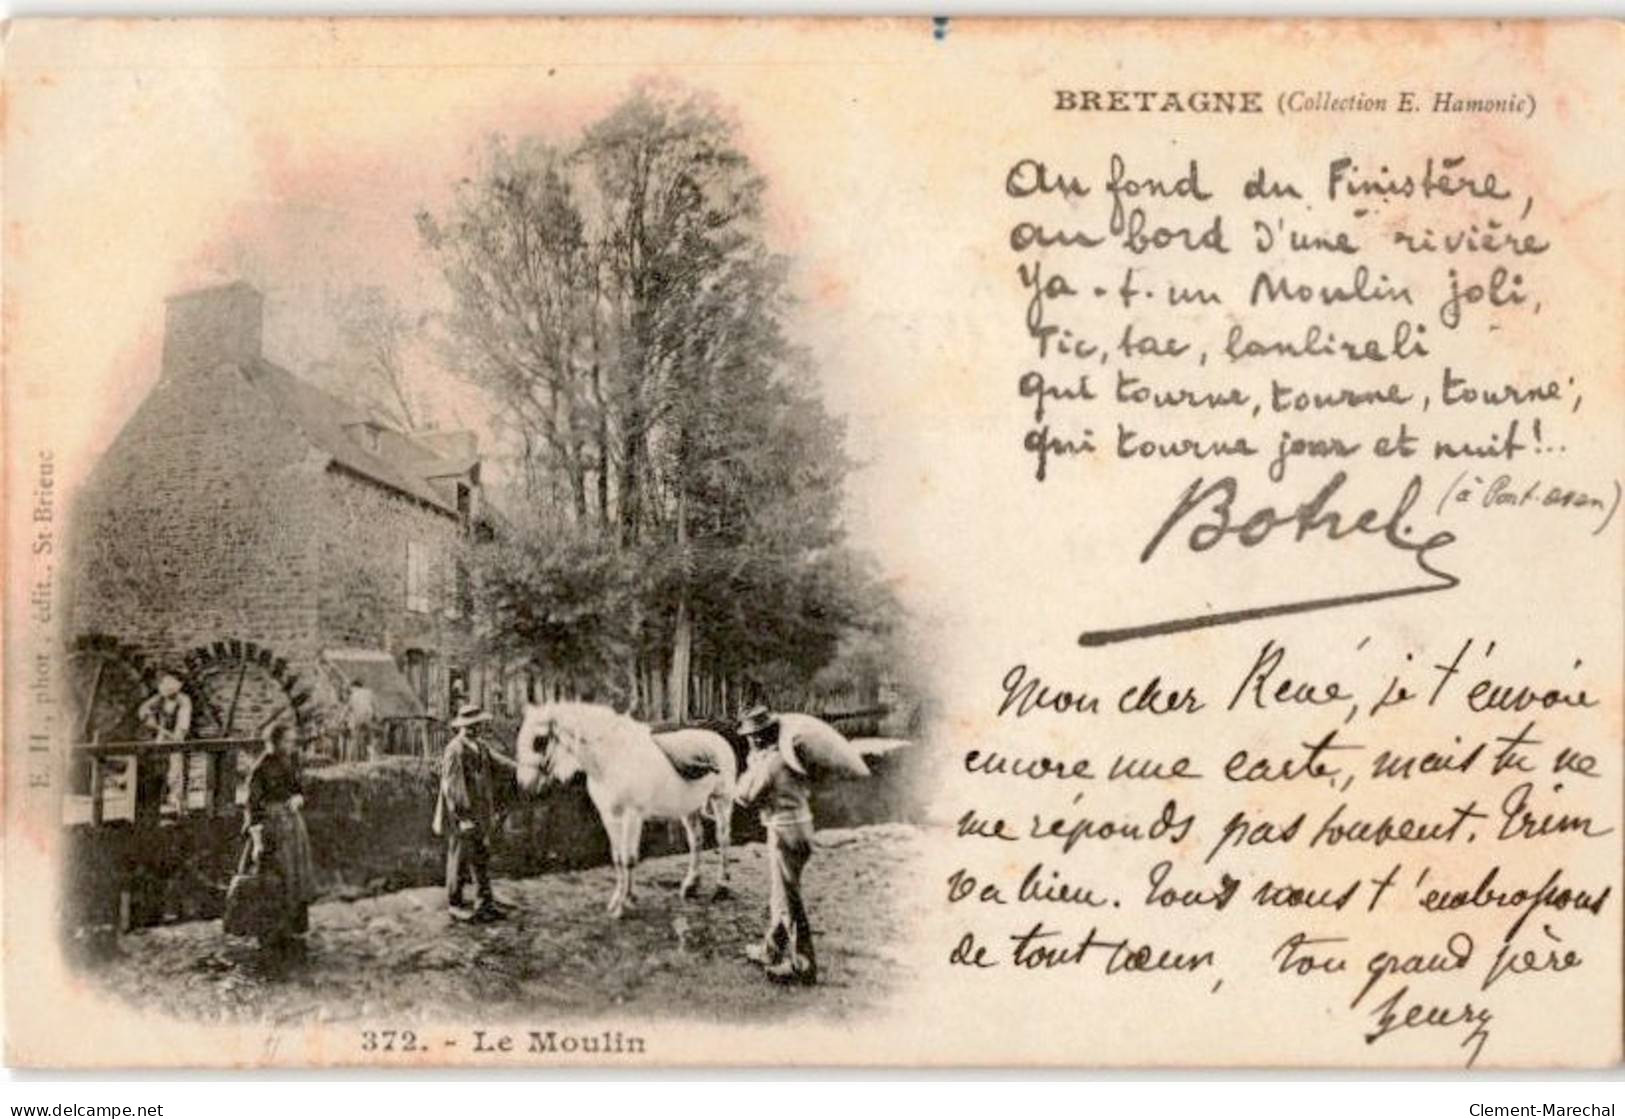 BRETAGNE (Collection E. Hamonic)
Au fond du Finistère,
au bord d'une rivière
Ya-t-un Moulin joli,
Tic, tac, lanlireli
qui tourne, tourne, tourne,
qui tourne jour et nuit!..
(à Pont-aven)
Botrel.
Mon cher René, je t'envoie
encore une carte, mais tu ne
me réponds pas souvent.
va bien. Tous nous t'embrassons
de tout coeur, ton grand père
Henry
E. H., phot. édit., St-Brieuc
372. - Le Moulin
delcampe.net
Clement-Marechal